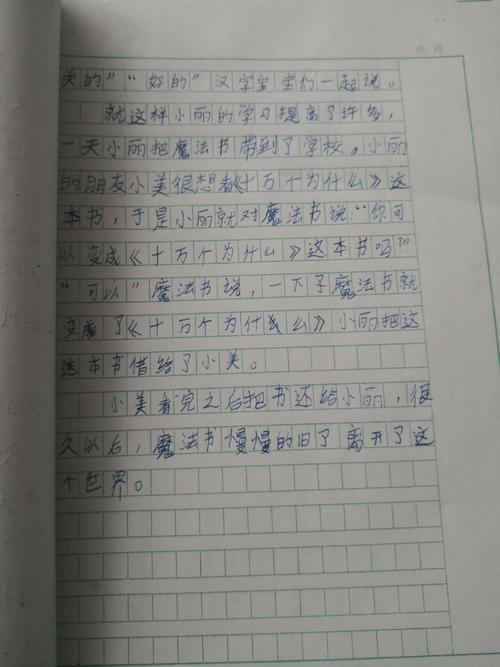 关的”“好的”汉字宝宝们一起说。
就这样小丽的学习提高了许多，
一天小丽把魔法书带到了学校。小丽
的朋友小美很想看《十万个为什么》这
本书，于是小丽就对魔法书说：“你可
以变成《十万个为什么》这本书吗？”
“可以”魔法书说，一下子魔法书就
变成了《十万个为什么》小丽把这
这本书借给了小美。
小美看完之后把书还给小丽，很
久以后，魔法书慢慢的旧了离开了这
个世界。